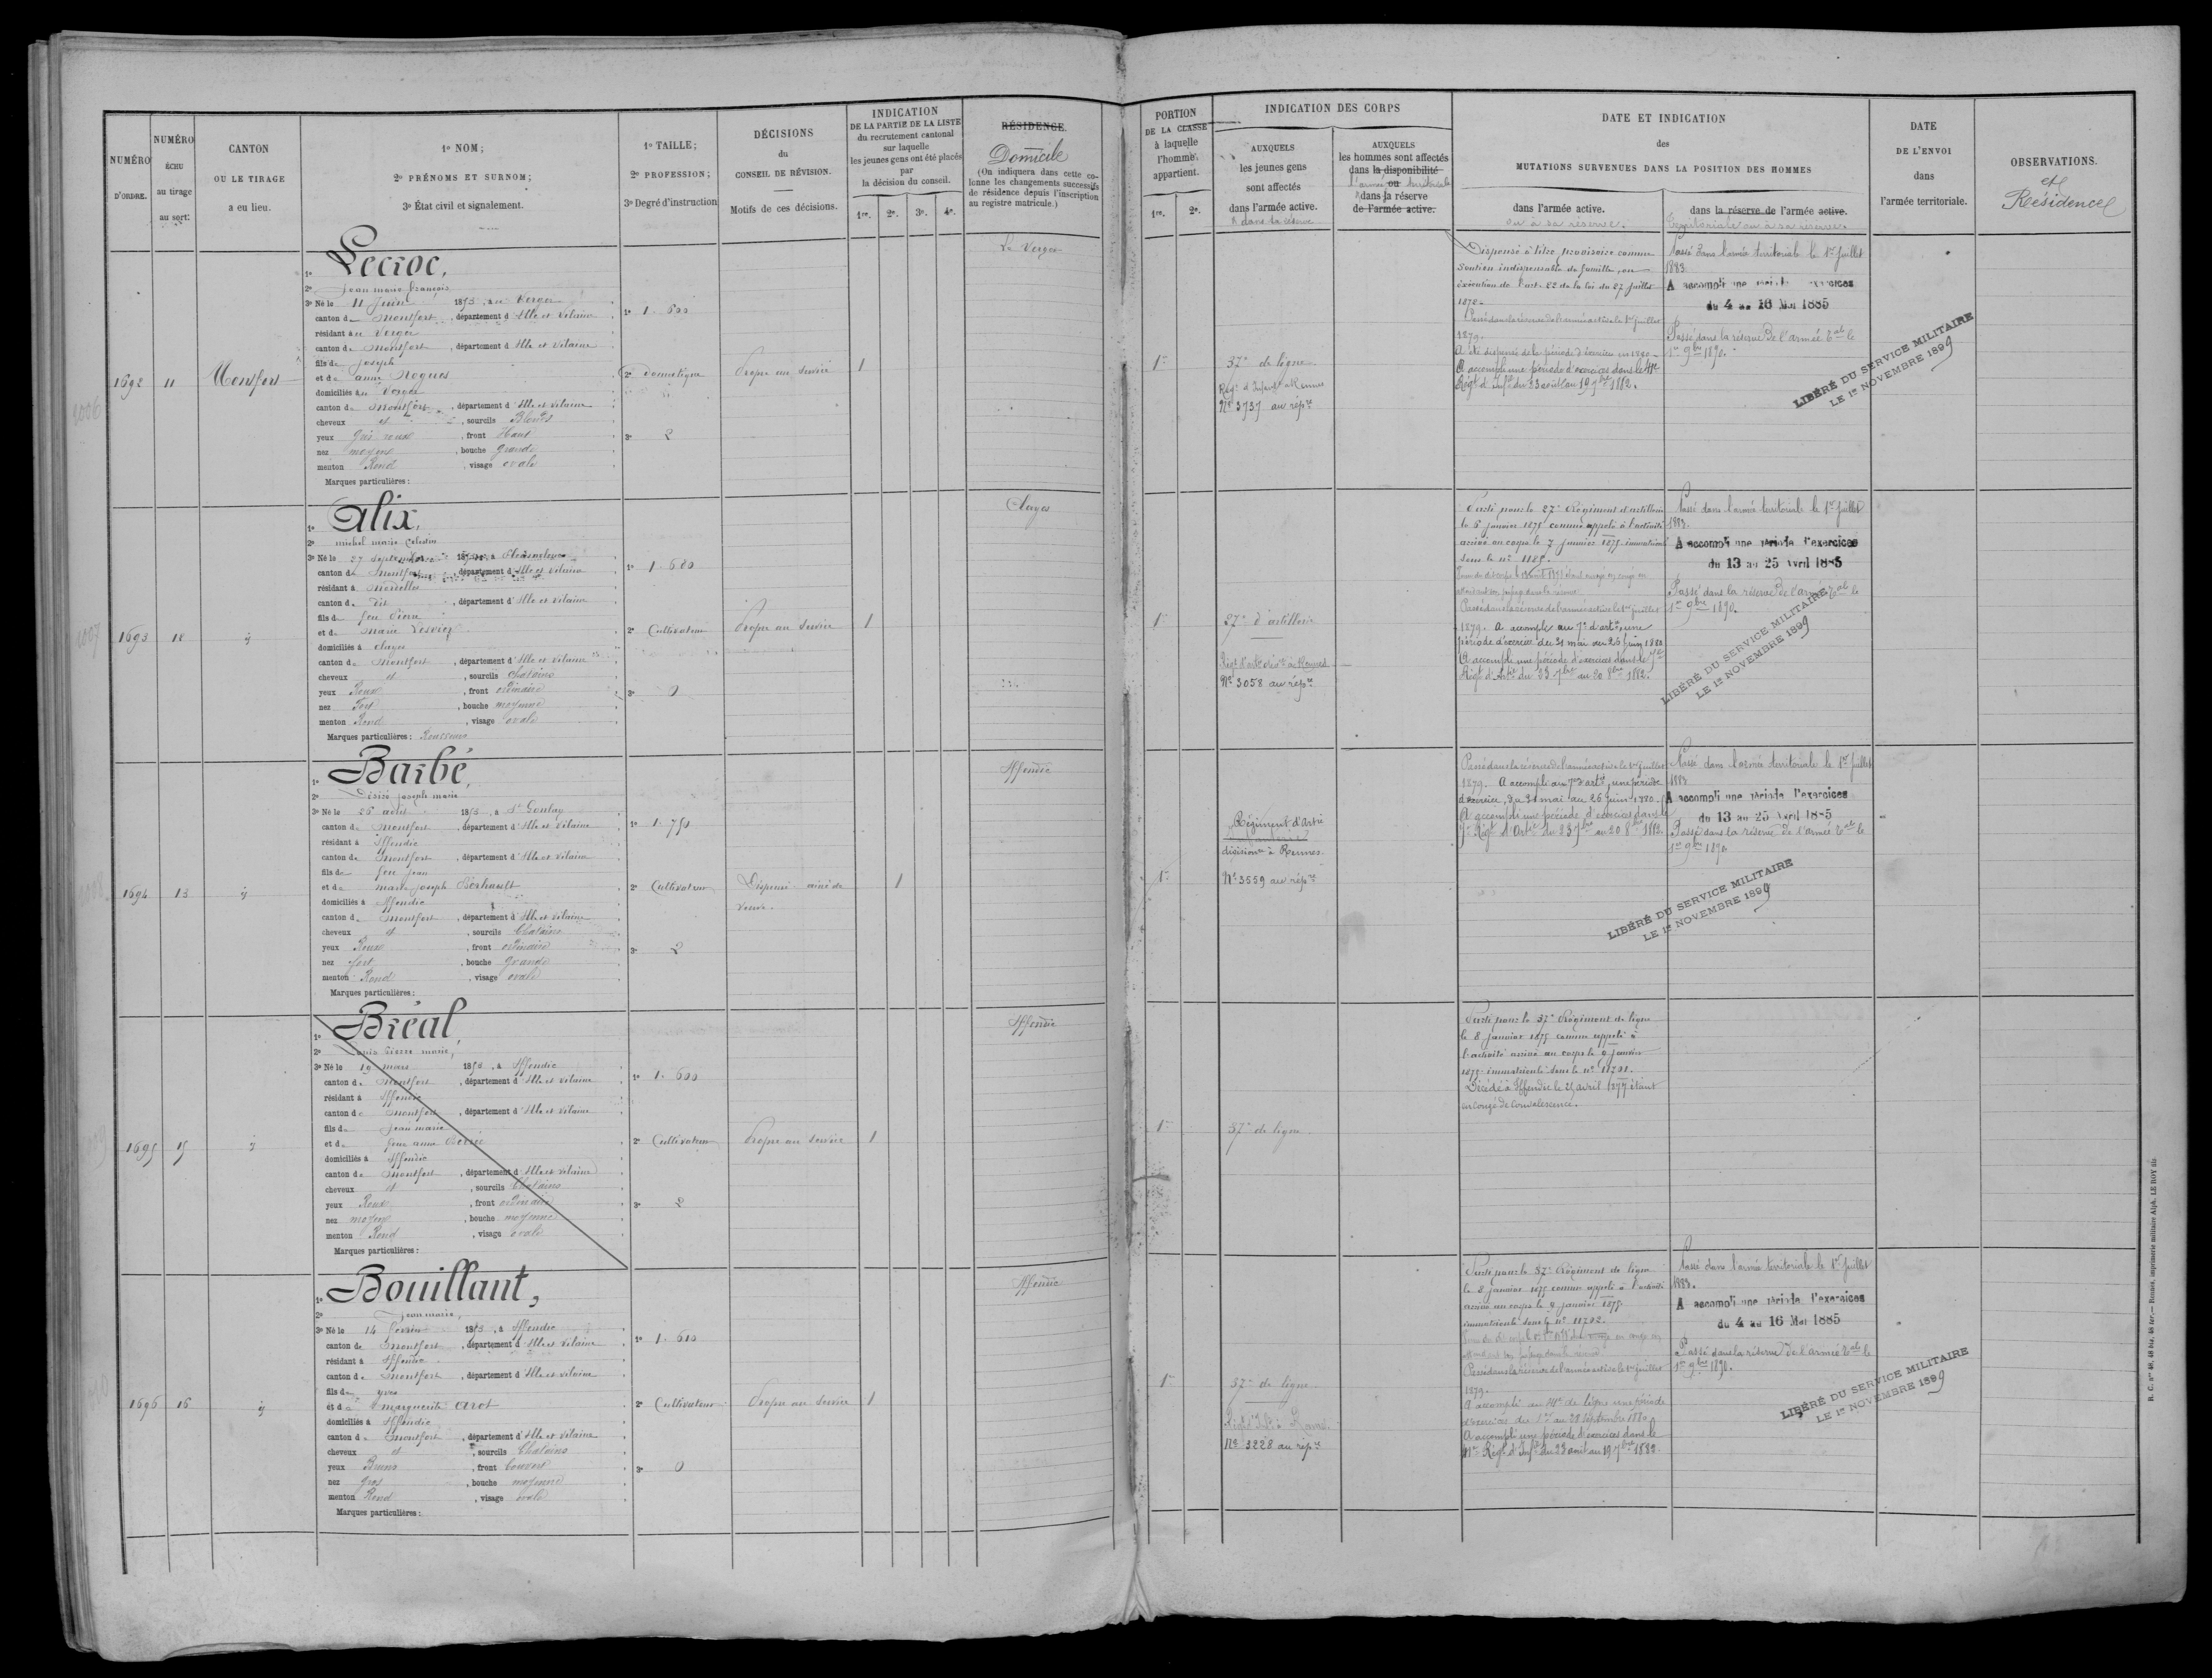 NUMÉRO
D'ORDRE.
NUMÉRO
ÉCHU
au tirage
au sort:
CANTON
OU LE TIRAGE
a eu lieu.
1º NOM;
2º PRÉNOMS ET SURNOM;
3º État civil et signalement.
1º TAILLE;
2º PROFESSION;
3º Degré d'instruction
DÉCISIONS
du
CONSEIL DE RÉVISION.
Motifs de ces décisions.
INDICATION
DE LA PARTIE DE LA LISTE
du recrutement cantonal
sur laquelle
les jeunes gens ont été placés
par
la décision du conseil.
1re. 2e. 3e. 4e.
RÉSIDENCE.
Domicile
(On indiquera dans cette co-
lonne les changements successifs
de résidence depuis l'inscription
au registre matricule.)
PORTION
DE LA CLASSE
à laquelle
l'homme
appartient.
1re. 2e.
INDICATION DES CORPS
AUXQUELS
les jeunes gens
sont affectés
dans l'armée active.
& dans la réserve
AUXQUELS
les hommes sont affectés
dans la disponibilité
ou
l'armée territoriale
& dans la réserve
de l'armée active.
DATE ET INDICATION
des
MUTATIONS SURVENUES DANS LA POSITION DES HOMMES
dans l'armée active.
ou à sa réserve.
dans la réserve de l'armée active.
Territoriale ou à sa réserve.
DATE
DE L'ENVOI
dans
l'armée territoriale.
OBSERVATIONS.
et
Résidence
1692 11 Montfort
1º Lecroc,
2º Jean marie françois
3º Né le 11 Juin 1853, au Verger
canton de Montfort, département d'Ille et Vilaine
résidant au Verger
canton de Montfort, département d'Ille et Vilaine
fils de Joseph
et de anne Nogues
domiciliés au Verger
canton de Montfort, département d'Ille et Vilaine
cheveux et, sourcils Blonds
yeux Gris roux, front Haut
nez moyen, bouche grande
menton Rond, visage ovale
Marques particulières :
1º 1. 600
2º domestique
3º 2
Propre au Service 1
Le Verger
1re 37e de ligne
Regt d'Infant. à Rennes
Nº 3737 au répre
Dispensé à titre provisoire comme
Soutien indispensable de famille, en
exécution de l'art. 22 de la loi du 27 Juillet
1872.
Passé dans la réserve de l'armée active le 1er Juillet
1879.
A été dispensé de la période d'exercices en 1880
A accompli une période d'exercices dans le 41e
Régt d'Infie du 23 août au 19 7bre 1882.
Passé dans l'armée territoriale le 1er Juillet
1883
A accompli une période d'exercices
du 4 au 16 Mai 1885
Passé dans la réserve de l'armée Tale le
1er 9bre 1890.
LIBÉRÉ DU SERVICE MILITAIRE
LE 1er NOVEMBRE 1899
1693 12 ij
1º Alix,
2º michel marie Celestin
3º Né le 27 Septembre
canton de Montfort, département d'Ille et Vilaine
résidant à
canton de dit, département d'Ille et Vilaine
fils de feu Pierre
et de Marie
domiciliés à Clayes
canton de Montfort, département d'Ille et Vilaine
cheveux et, sourcils Chatains
yeux Roux, front ordinaire
nez Fort, bouche moyenne
menton Rond, visage ovale
Marques particulières : Rousseurs
1º 1. 680
2º Cultivateur
3º 0
Propre au Service 1
Clayes
1re 27e d'artillerie
Régt d'artie
Nº 3058 au répre
Parti pour le 27e Régiment d'artillerie
le 6 Janvier 1875 comme appelé à l'activité
arrivé au corps le 7 Janvier 1875 immatriculé
sous le nº 1185.
Passé dans la réserve de l'armée active le 1er Juillet
1879. A accompli au 7e d'artie, une
période d'exercices du 31 mai au 26 juin 1880
A accompli une période d'exercices dans le 7e
Régt d'Artie du 23 7bre au 20 8bre 1882.
Passé dans l'armée territoriale le 1er Juillet
1883.
A accompli une période d'exercices
du 13 au 25 Avril 1885
Passé dans la réserve de l'armée Tale le
1er 9bre 1890.
LIBÉRÉ DU SERVICE MILITAIRE
LE 1er NOVEMBRE 1899
1694 13 ij
1º Barbé,
2º Désiré Joseph marie
3º Né le 25 avril 1853, à St Gonlay
canton de Montfort, département d'Ille et Vilaine
résidant à Iffendic
canton de Montfort, département d'Ille et Vilaine
fils de feu Jean
et de marie Joseph Berhault
domiciliés à Iffendic
canton de Montfort, département d'Ille et Vilaine
cheveux et, sourcils Chatains
yeux Roux, front ordinaire
nez fort, bouche grande
menton Rond, visage ovale
Marques particulières :
1º 1. 750
2º Cultivateur
3º 2
Dispensé ainé de
veuve.
1
Iffendic
1re
Régiment d'Artie
divisionre à Rennes
Nº 3559 au répre
Passé dans la réserve de l'armée active le 1er Juillet
1879. A accompli au 7e d'artie, une période
d'exercice, du 31 mai au 26 juin 1880.
A accompli une période d'exercices dans le
7e Régt d'Artie du 23 7bre au 20 8bre 1882.
Passé dans l'armée territoriale le 1er Juillet
1883
A accompli une période d'exercices
du 13 au 25 Avril 1885
Passé dans la réserve de l'armée Tale le
1er 9bre 1890
LIBÉRÉ DU SERVICE MILITAIRE
LE 1er NOVEMBRE 1899
1695 15 ij
1º Bréal,
2º Louis Pierre marie,
3º Né le 19 mars 1853, à Iffendic
canton de Montfort, département d'Ille et Vilaine
résidant à Iffendic
canton de Montfort, département d'Ille et Vilaine
fils de Jean marie
et de feue anne
domiciliés à Iffendic
canton de Montfort, département d'Ille et Vilaine
cheveux et, sourcils Chatains
yeux Roux, front ordinaire
nez moyen, bouche moyenne
menton Rond, visage ovale
Marques particulières :
1º 1. 600
2º Cultivateur
3º 2
Propre au Service 1
Iffendic
1re 37e de ligne
Parti pour le 37e Régiment de ligne
le 8 Janvier 1875 comme appelé à
l'activité arrivé au corps le 9 Janvier
1875 immatriculé sous le nº 11701.
Décédé à Iffendic le 25 avril 1877 étant
en congé de convalescence.
1696 16 ij
1º Bouillant,
2º Jean marie,
3º Né le 14 février 1853, à Iffendic
canton de Montfort, département d'Ille et Vilaine
résidant à Iffendic
canton de Montfort, département d'Ille et Vilaine
fils de yves
et de marguerite Arot
domiciliés à Iffendic
canton de Montfort, département d'Ille et Vilaine
cheveux et, sourcils Chatains
yeux Bruns, front Couvert
nez gros, bouche moyenne
menton Rond, visage ovale
Marques particulières :
1º 1. 610
2º Cultivateur
3º 0
Propre au Service 1
Iffendic
1re 37e de ligne
Nº 3228 au répre
Parti pour le 37e Régiment de ligne
le 8 Janvier 1875 comme appelé à l'activité
arrivé au corps le 9 Janvier 1875
immatriculé sous le nº 11702.
Passé dans la réserve de l'armée active le 1er Juillet
1879.
A accompli au 41e de ligne une période
d'exercices du 1er au 28 Septembre 1880
A accompli une période d'exercices dans le
41e Régt d'Infie du 23 aout au 19 7bre 1882
Passé dans l'armée territoriale le 1er Juillet
1883.
A accompli une période d'exercices
du 4 au 16 Mai 1885
Passé dans la réserve de l'armée Tale le
1er 9bre 1890.
LIBÉRÉ DU SERVICE MILITAIRE
LE 1er NOVEMBRE 1899
R. C. nos 48, 48 bis, 48 ter.— Rennes, imprimerie militaire Alph. LE ROY fils